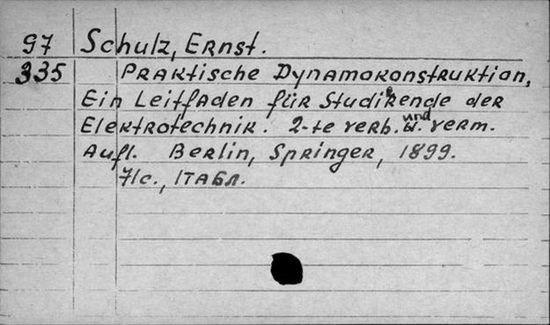 97 Schulz, Ernst.
335 Praktische Dynamokonstruktion,
Ein Leitfaden für Studirende der
Elektrotechnik. 2-te verb. und verm.
Aufl. Berlin, Springer, 1899.
71c., 1табл.